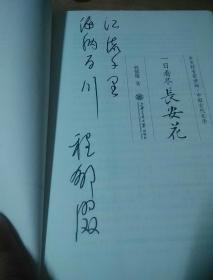 一日看尽
長安花
程郁缀 著
江流千里
海纳百川
程郁缀